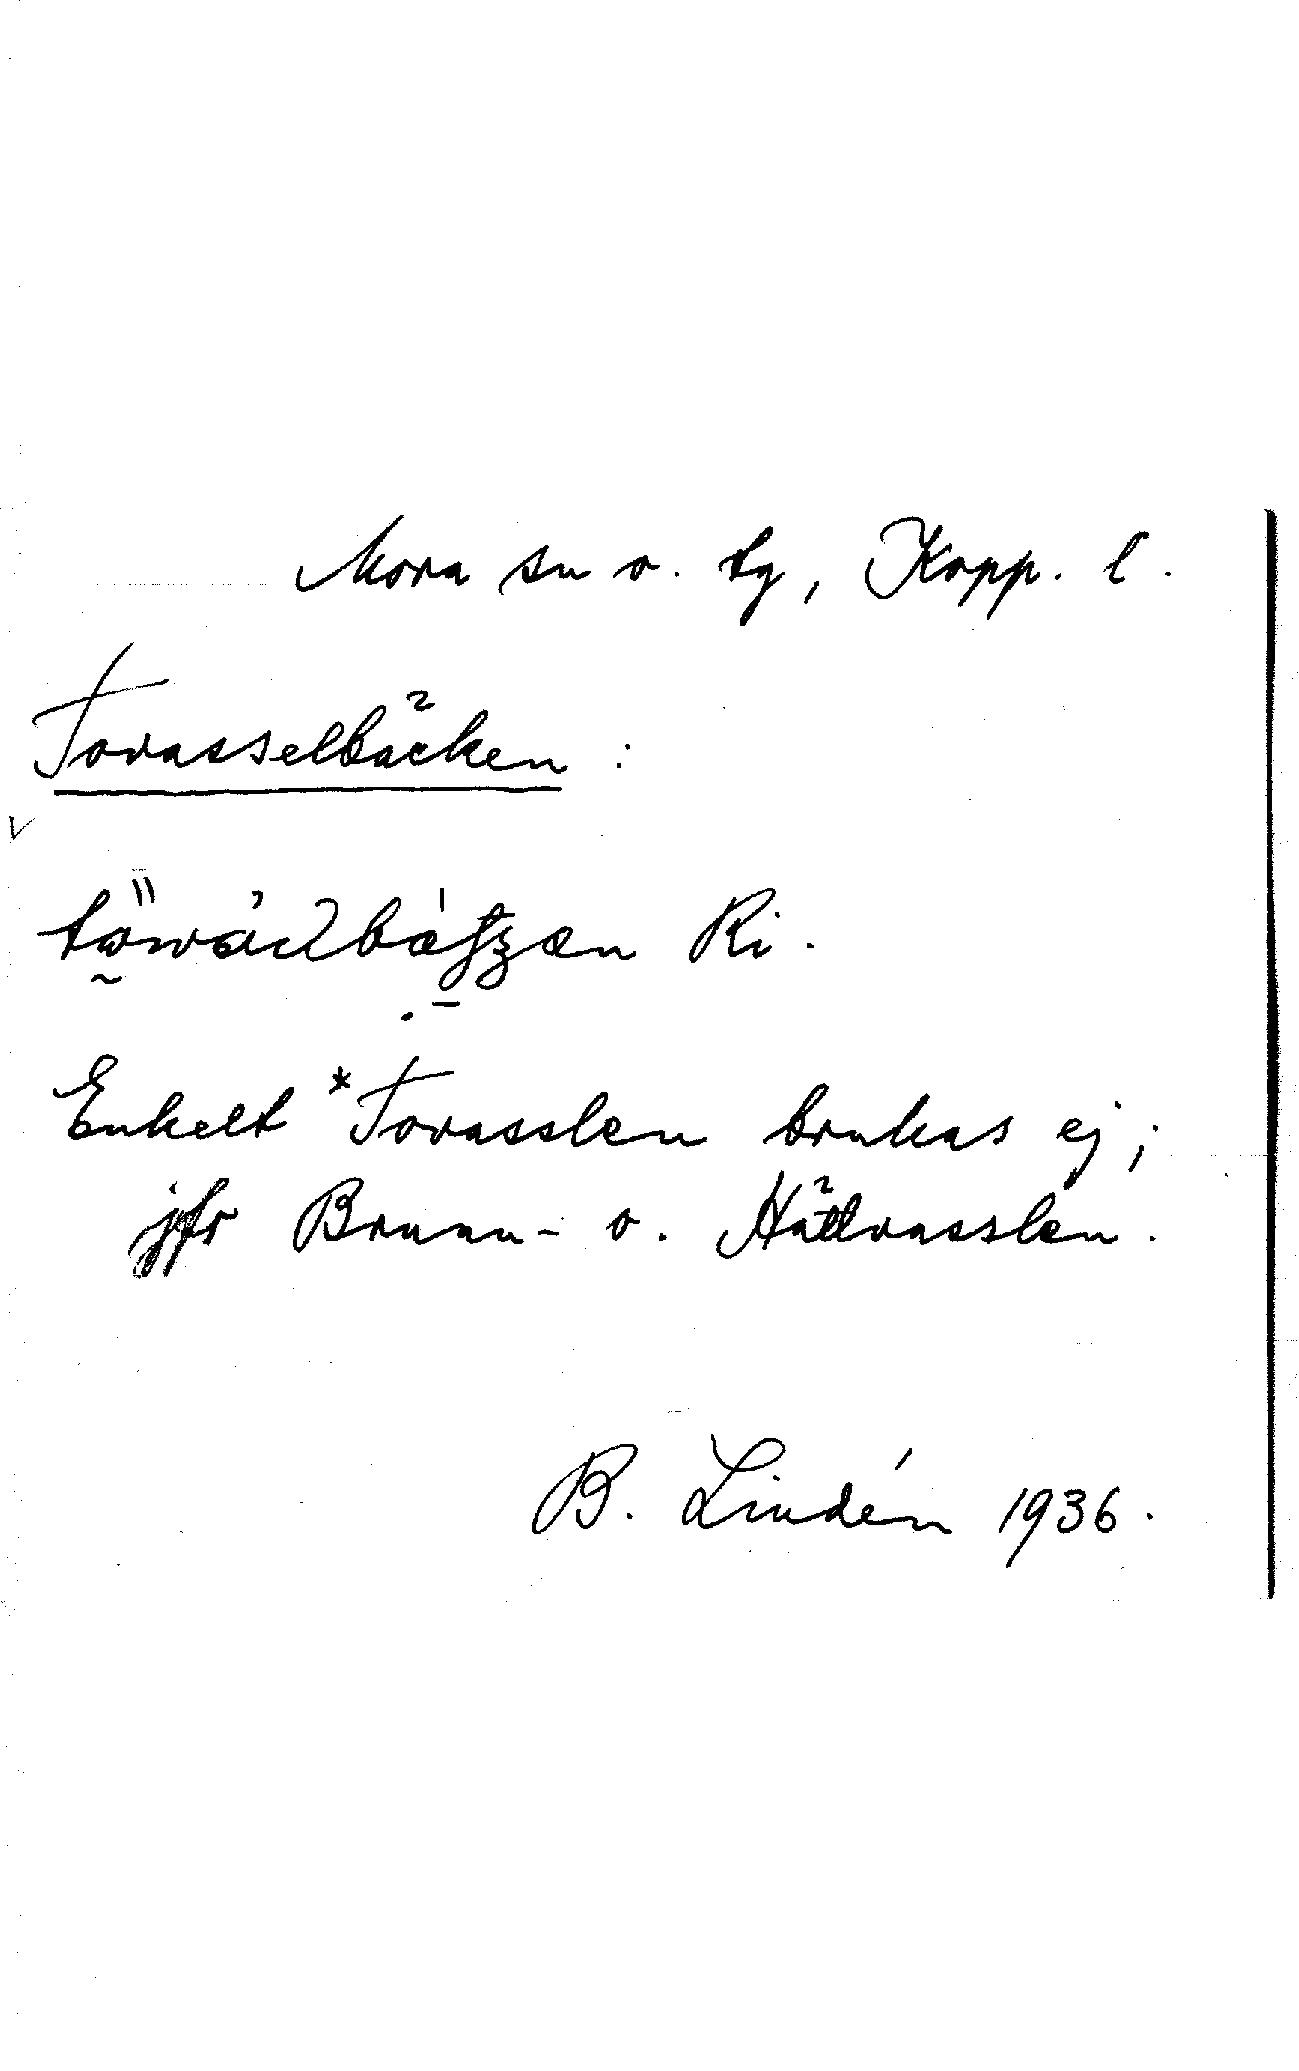 Mora sn o. tg, Kopp. l.
Tovasselbäcken :
Ri.
Enkelt *Tovasslen brukas ej;
jfr Brunn- o. Hättvasslen.
B. Lindén 1936.